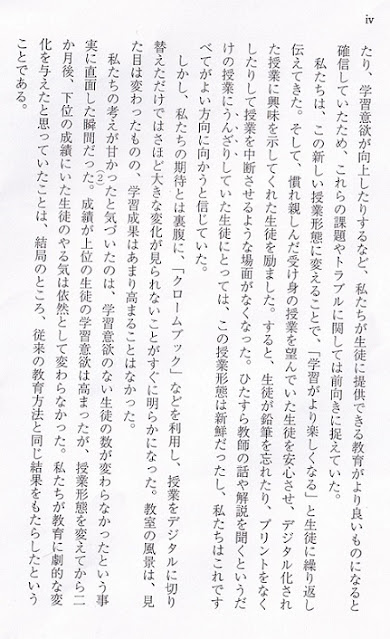 iv
たり、学習意欲が向上したりするなど、私たちが生徒に提供できる教育がより良いものになると
確信していたため、これらの課題やトラブルに関しては前向きに捉えていた。
私たちは、この新しい授業形態に変えることで、「学習がより楽しくなる」と生徒に繰り返し
伝えてきた。そして、慣れ親しんだ受け身の授業を望んでいた生徒を安心させ、デジタル化され
た授業に興味を示してくれた生徒を励ました。すると、生徒が鉛筆を忘れたり、プリントをなく
したりして授業を中断させるような場面がなくなった。ひたすら教師の話や解説を聞くというだ
けの授業にうんざりしていた生徒にとっては、この授業形態は新鮮だったし、私たちはこれです
べてがよい方向に向かうと信じていた。
しかし、私たちの期待とは裏腹に、「クロームブック」などを利用し、授業をデジタルに切り
替えただけではさほど大きな変化が見られないことがすぐに明らかになった。教室の風景は、見
た目は変わったものの、学習成果はあまり高まることはなかった。
私たちの考えが甘かったと気づいたのは、学習意欲のない生徒の数が変わらなかったという事
実に直面した瞬間だった。(2)成績が上位の生徒の学習意欲は高まったが、授業形態を変えてから二
か月後、下位の成績にいた生徒のやる気は依然として変わらなかった。私たちが教育に劇的な変
化を与えたと思っていたことは、結局のところ、従来の教育方法と同じ結果をもたらしたという
ことである。